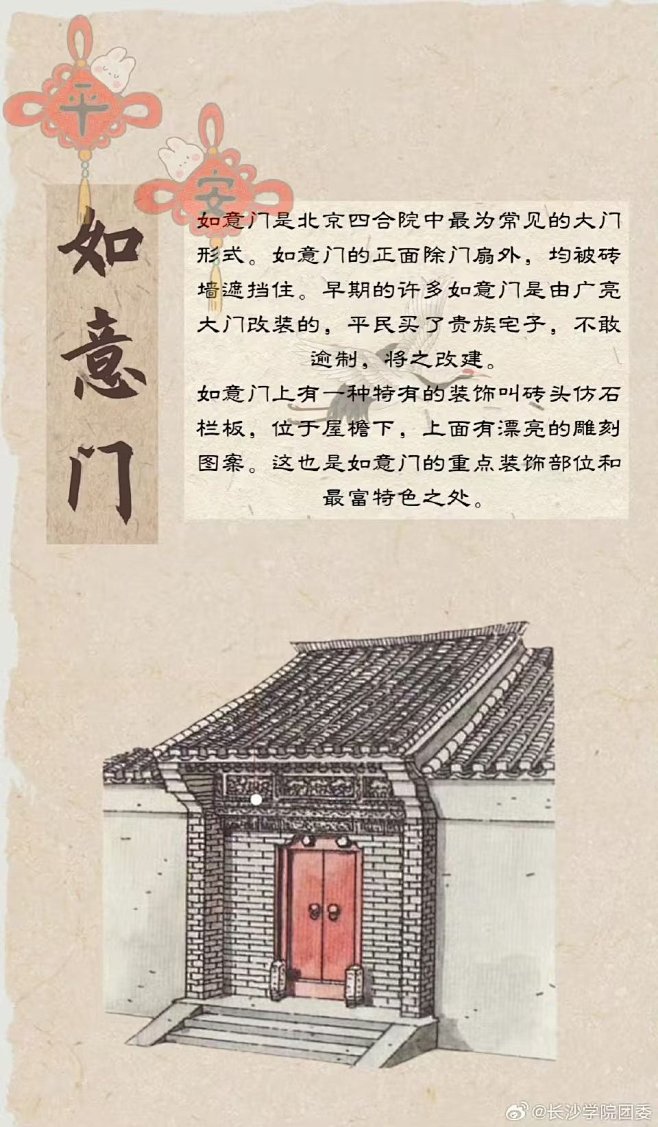 平
安
如意门
如意门是北京四合院中最为常见的大门
形式。如意门的正面除门扇外，均被砖
墙遮挡住。早期的许多如意门是由广亮
大门改装的，平民买了贵族宅子，不敢
逾制，将之改建。
如意门上有一种特有的装饰叫砖头仿石
栏板，位于屋檐下，上面有漂亮的雕刻
图案。这也是如意门的重点装饰部位和
最富特色之处。
@长沙学院团委